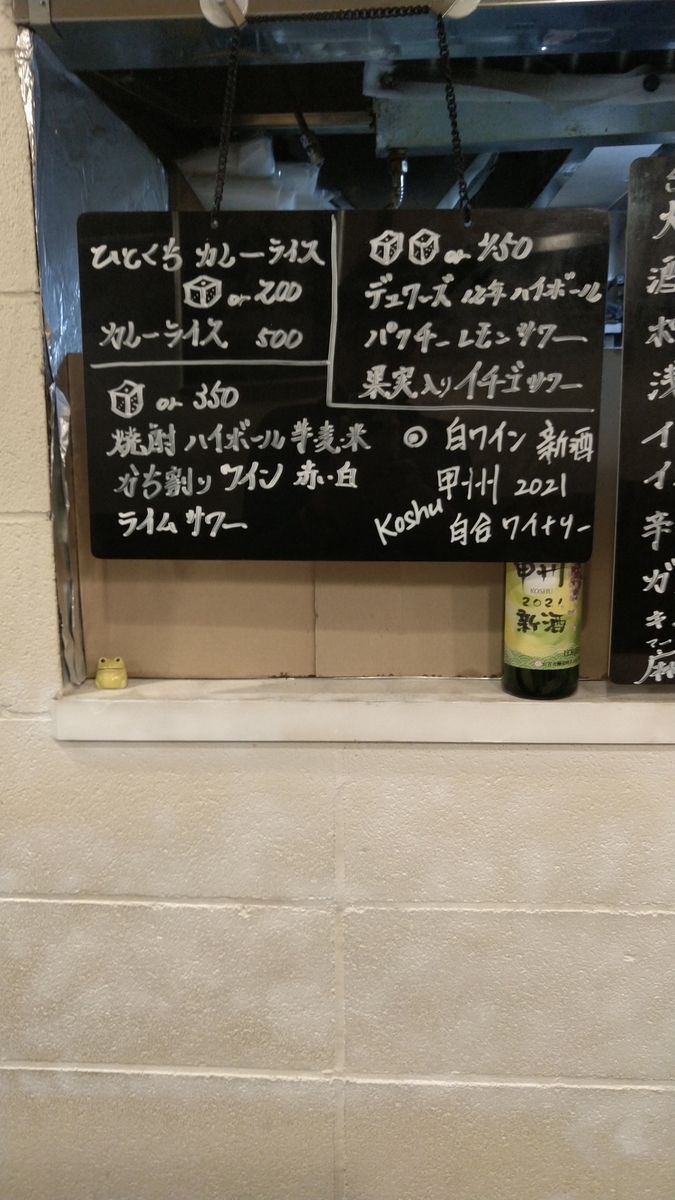 ひとくち カレーライス
or 200
カレーライス 500
or 350
焼酎 ハイボール 芋麦米
かち割り ワイン 赤・白
ライムサワー
or 450
デュワーズ 12年 ハイボール
パクチーレモンサワー
果実入りイチゴサワー
◎ 白ワイン 新酒
甲州 2021
Koshu 白百合 ワイナリー
甲州
KOSHU
2021
新酒
大
酒
ポ
浅
イ
イ
辛
ガ
キ
マー
麻